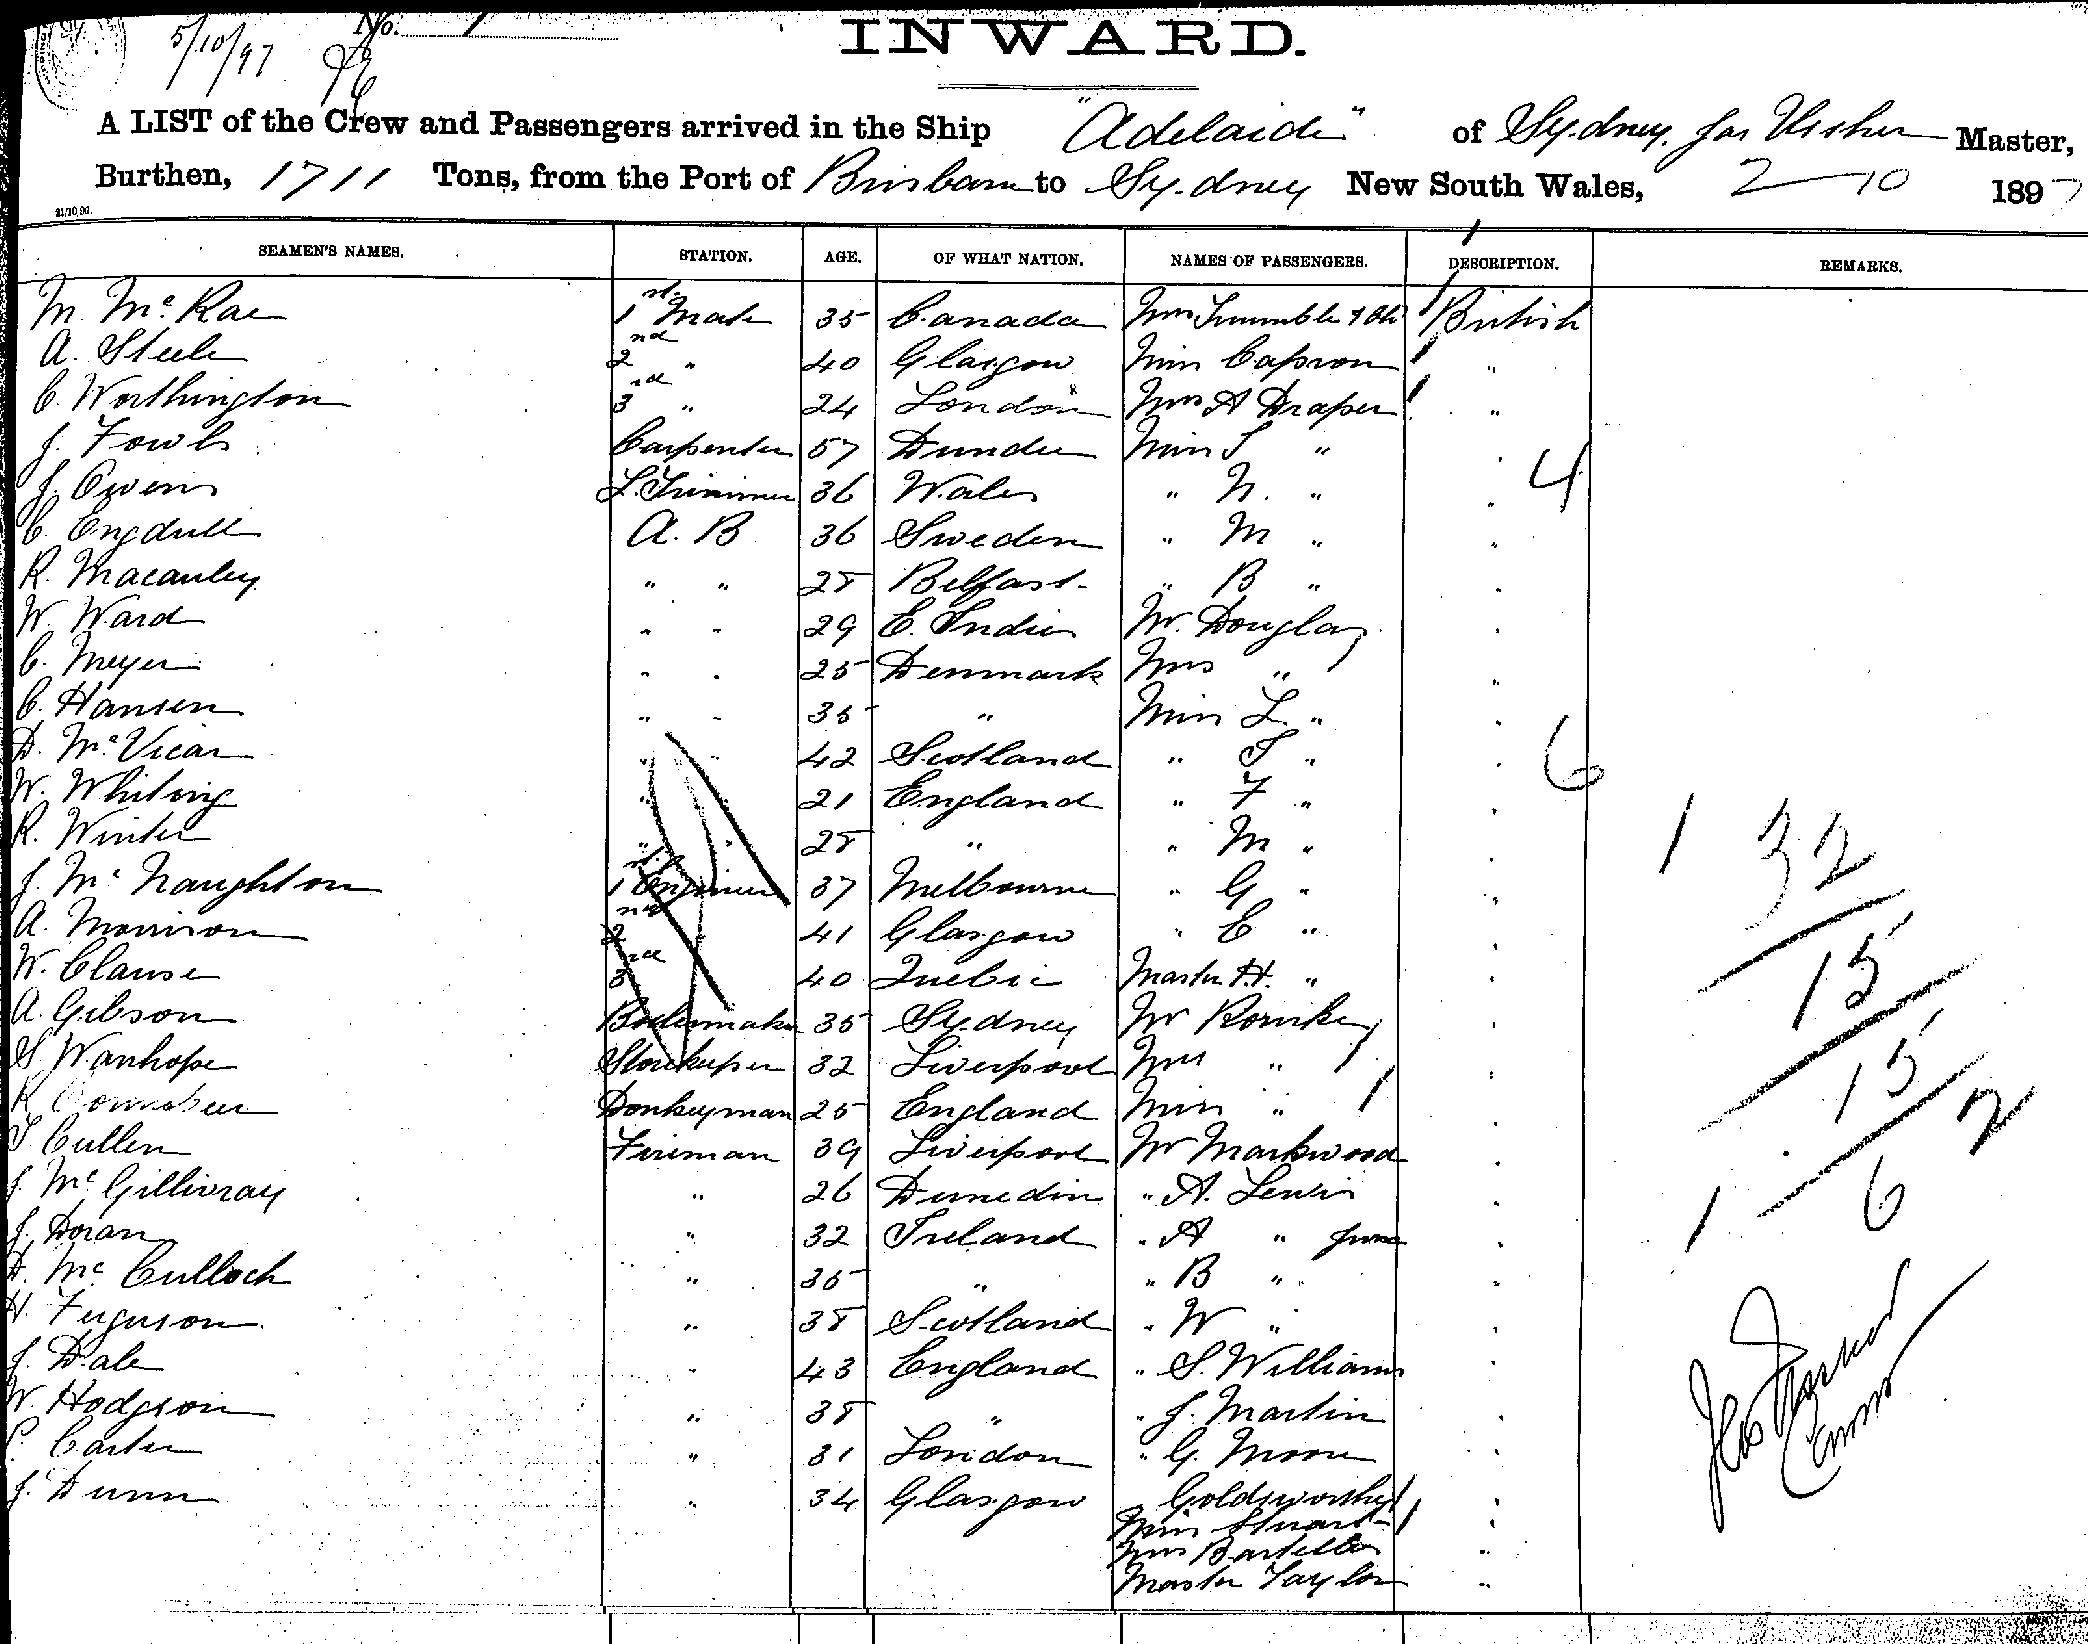 5/10/97
No. 1
INWARD.
A LIST of the Crew and Passengers arrived in the Ship "Adelaide" of Sydney, Jas Ussher Master,
Burthen, 1711 Tons, from the Port of Brisbane to Sydney New South Wales, 2-10 1897
SEAMEN'S NAMES. STATION. AGE. OF WHAT NATION. NAMES OF PASSENGERS. DESCRIPTION. REMARKS.
M. McRae 1st Mate 35 Canada Mrs Trumble & Ch British
A. Steele 2nd " 40 Glasgow Miss Capron "
C. Worthington 3rd " 24 London Mrs A Draper "
J. Fowls Carpenter 57 Dundee Miss S " "
J. Owens L. Trimmer 36 Wales " N. " " 4
C. Engdull A. B 36 Sweden " M " "
R. Macauley " " 28 Belfast " B " "
W. Ward " " 29 E. Indies Mr. Douglas "
C. Meyer " " 25 Denmark Mrs " "
C. Hansen " " 35 " Miss L. " "
D. McVicar " " 42 Scotland " J " " 6
W. Whiting " " 21 England " F " "
R. Winter " " 28 " " M " " 1 32
J. McNaughton 1st Engineer 37 Melbourne " G " "
A. Morrison 2nd 41 Glasgow " E " "
W. Clause 3rd 40 Quebec Master H. " " 15
A. Gibson Boilermaker 35 Sydney Mr "
S Wanhope Storekeeper 32 Liverpool Mrs " "
R Donkeyman 25 England Miss " " 15 2
T Cullen Fireman 39 Liverpool Mr Markwood "
J. McGillivray " 26 Dunedin " A. Lewis " 1 6
J. Doran " 32 Ireland " A " Junr "
D. McCulloch " 35 " " B " "
H. Ferguson " 38 Scotland " W " "
J. Dale " 43 England " S. Williams "
W. Hodgson " 38 " " J. Martin "
C. Carter " 31 London " G. Moore "
J. Dunn " 34 Glasgow Goldsworthy "
Miss Stuart "
Mrs "
Master Taylor "